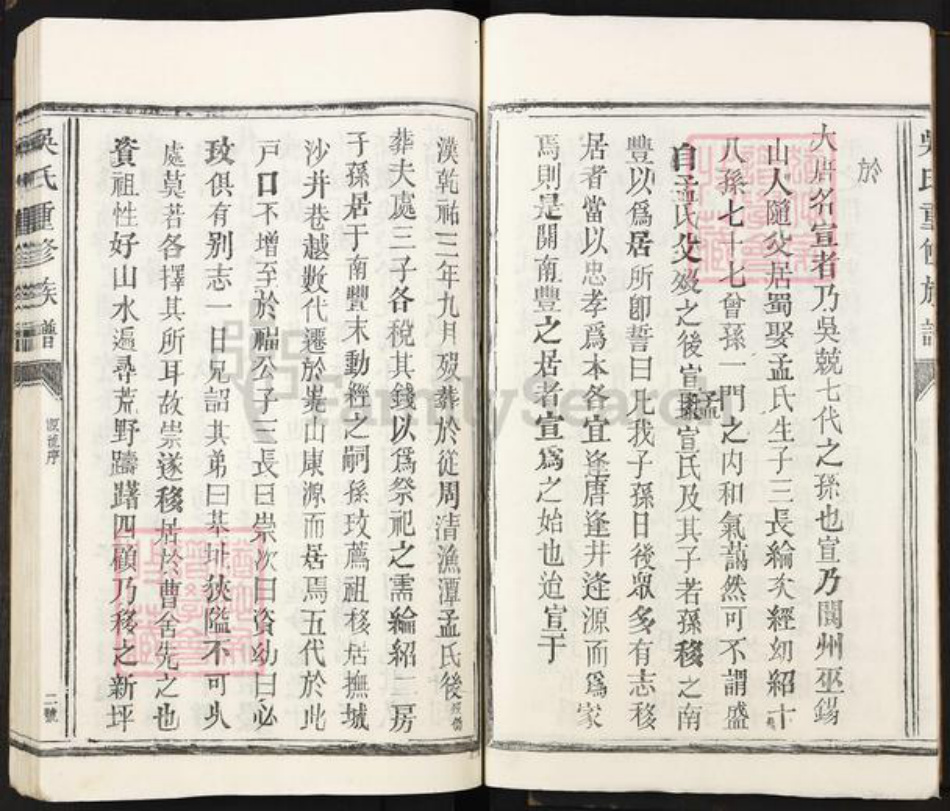 於
大唐名宣者乃吳兢七代之孫也宣乃閬州巫錫
山人隨父居蜀娶孟氏生子三長綸次經幼紹十
八孫七十七曾孫一門之內和氣藹然可不謂盛
自孟氏父歿之後宣挈孟宣氏及其子若孫移之南
豐以爲居所卽誓曰凡我子孫日後眾多有志移
居者當以忠孝爲本各宜逢唐逢井逢源而爲家
焉則是開南豐之居者宣爲之始也迨宣于
漢乾祐三年九月歿葬於從周清漁潭孟氏後
葬夫處三子各稅其錢以爲祭祀之需綸紹二房
子孫居于南豐末動經之嗣孫玫薦祖移居撫城
沙井巷越數代遷於嵩山康源而居焉五代於此
戸口不增至於福公子三長曰崇次曰資幼曰必
玫俱有别志一日兄詔其弟曰基址狹隘不可乆
處莫若各擇其所耳故崇遂移居於曹舍先之也
資祖性好山水遍尋荒野躊躇四顧乃移之新坪
吳氏重修族譜
源流序
二號
吳氏重修族譜
FamilySearch